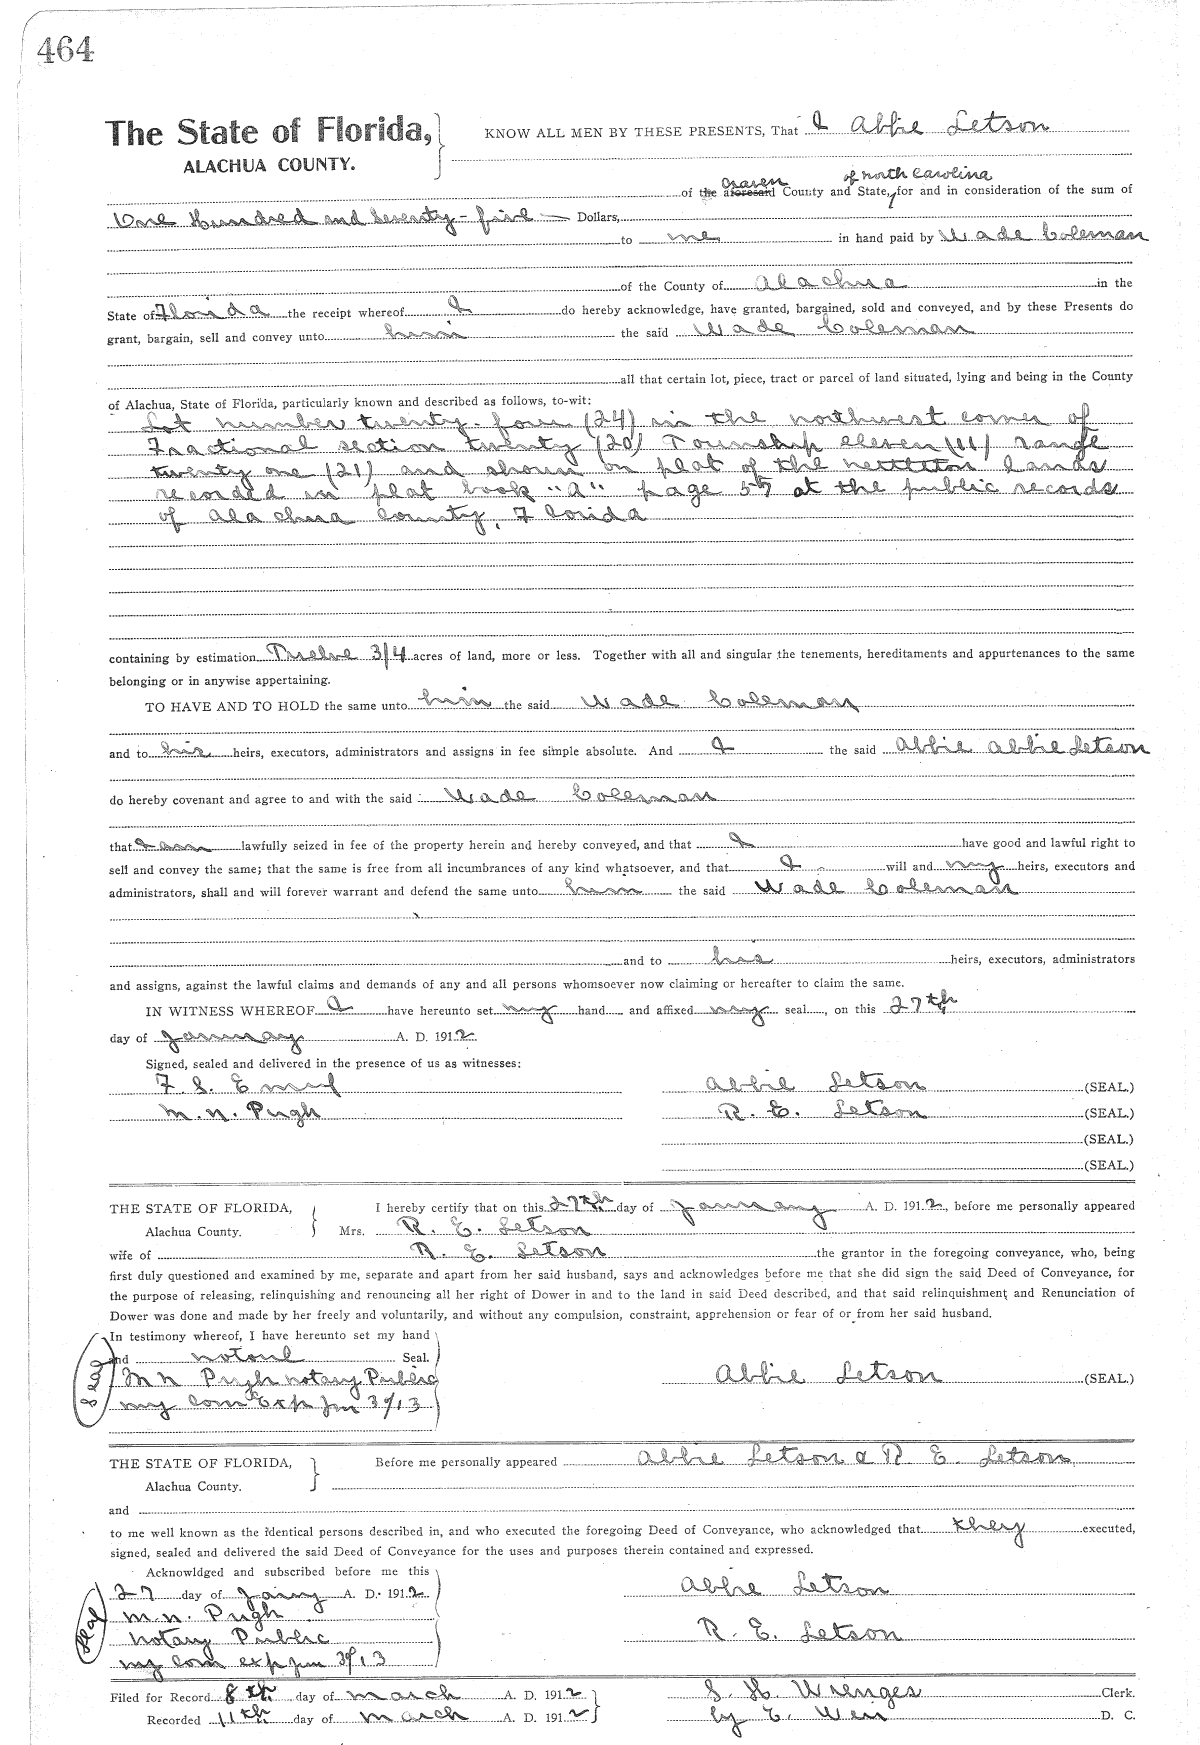 464
The State of Florida, KNOW ALL MEN BY THESE PRESENTS, That I Abbie Letson
ALACHUA COUNTY.
Craven of North Carolina
of the aforesaid County and State, for and in consideration of the sum of
One Hundred and Seventy-five Dollars,
to me in hand paid by Wade Coleman
of the County of Alachua in the
State of Florida the receipt whereof I do hereby acknowledge, have granted, bargained, sold and conveyed, and by these Presents do
grant, bargain, sell and convey unto him the said Wade Coleman
all that certain lot, piece, tract or parcel of land situated, lying and being in the County
of Alachua, State of Florida, particularly known and described as follows, to-wit:
Lot number twenty-four (24) in the northwest corner of
Fractional section twenty (20) Township eleven (11) range
twenty one (21) and shown on plat of the nettleton lands
recorded in plat book "A" page 57 at the public records
of Alachua County, Florida
containing by estimation Twelve 3/4 acres of land, more or less. Together with all and singular the tenements, hereditaments and appurtenances to the same
belonging or in anywise appertaining.
TO HAVE AND TO HOLD the same unto him the said Wade Coleman
and to his heirs, executors, administrators and assigns in fee simple absolute. And I the said Abbie Abbie Letson
do hereby covenant and agree to and with the said Wade Coleman
that I am lawfully seized in fee of the property herein and hereby conveyed, and that I have good and lawful right to
sell and convey the same; that the same is free from all incumbrances of any kind whatsoever, and that I will and my heirs, executors and
administrators, shall and will forever warrant and defend the same unto him the said Wade Coleman
and to his heirs, executors, administrators
and assigns, against the lawful claims and demands of any and all persons whomsoever now claiming or hereafter to claim the same.
IN WITNESS WHEREOF I have hereunto set my hand and affixed my seal, on this 27th
day of January A. D. 1912.
Signed, sealed and delivered in the presence of us as witnesses:
F. S. Abbie Letson (SEAL.)
M. N. Pugh R. E. Letson (SEAL.)
(SEAL.)
(SEAL.)
THE STATE OF FLORIDA, I hereby certify that on this 27th day of January A. D. 1912, before me personally appeared
Alachua County. Mrs. R. E. Letson
wife of R. E. Letson the grantor in the foregoing conveyance, who, being
first duly questioned and examined by me, separate and apart from her said husband, says and acknowledges before me that she did sign the said Deed of Conveyance, for
the purpose of releasing, relinquishing and renouncing all her right of Dower in and to the land in said Deed described, and that said relinquishment and Renunciation of
Dower was done and made by her freely and voluntarily, and without any compulsion, constraint, apprehension or fear of or from her said husband.
In testimony whereof, I have hereunto set my hand
and Seal.
Seal M N Pugh notary Public Abbie Letson (SEAL.)
my Com Exp Jan 3/13
THE STATE OF FLORIDA, Before me personally appeared Abbie Letson & R E. Letson
Alachua County.
and
to me well known as the identical persons described in, and who executed the foregoing Deed of Conveyance, who acknowledged that they executed,
signed, sealed and delivered the said Deed of Conveyance for the uses and purposes therein contained and expressed.
Acknowldged and subscribed before me this
27 day of A. D. 1912 Abbie Letson
Seal M. N. Pugh
Notary Public R. E. Letson
my Com exp Jan 3/13
Filed for Record 8th day of March A. D. 1912 S. H. Wienges Clerk.
Recorded 11th day of March A. D. 1912 by E. D. C.